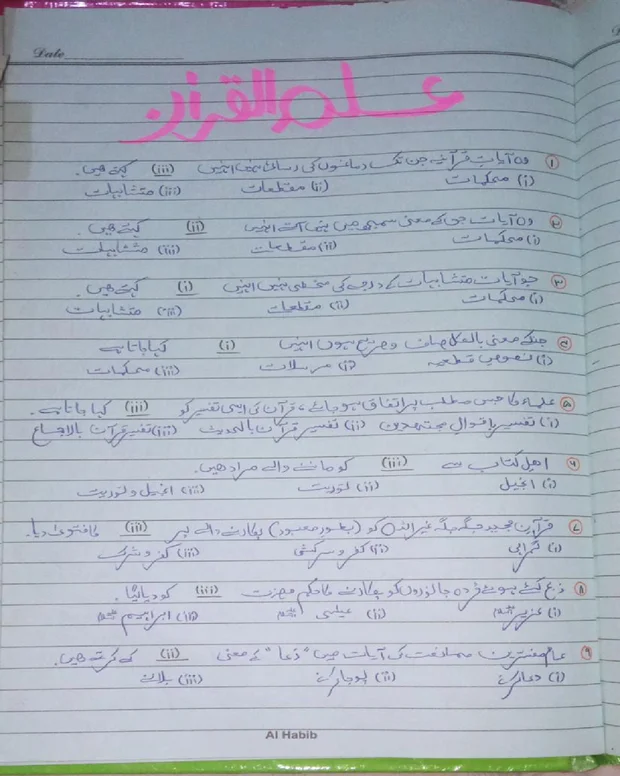 Date
علم القرآن
۱ وہ آیاتِ قرآنیہ جن تک دماغوں کی رسائی نہیں انہیں (iii) کہتے ہیں۔
(i) محکمات (ii) مقطعات (iii) متشابہات
۲ وہ آیات جن کے معنی سمجھ میں نہیں آتے انہیں (ii) کہتے ہیں۔
(i) محکمات (ii) مقطعات (iii) متشابہات
۳ جو آیات متشابہات کے درجے کی مخفی نہیں انہیں (i) کہتے ہیں۔
(i) محکمات (ii) مقطعات (iii) متشابہات
۴ جنکے معنی بالکل صاف و صریح ہوں انہیں (i) کہا جاتا ہے
(i) نصوص قطعیہ (ii) مرسلات (iii) محکمات
۵ علماء کا جس مطلب پر اتفاق ہو جائے، قرآن کی ایسی تفسیر کو (iii) کہا جاتا ہے۔
(i) تفسیر باقوالِ مجتہدین (ii) تفسیر قرآن بالحدیث (iii) تفسیر قرآن بالاجماع
۶ اھل کتاب سے (iii) کو ماننے والے مراد ھیں۔
(i) انجیل (ii) توریت (iii) انجیل و توریت
۷ قرآن مجید جگہ جگہ غیر اللہ کو (بطور معبود) پکارنے والے پر (iii) کا فتویٰ دیا۔
(i) گمراہی (ii) کفر و سرکشی (iii) کفر و شرک
۸ ذبح کئے ہوئے مردہ جانوروں کو پکارنے کا حکم حضرت (iii) کو دیا گیا۔
(i) عزیر (ii) عیسیٰ (iii) ابراہیم
۹ عام مفسرین ممانعت کی آیات میں "دُعا" کے معنی (ii) کے کرتے ھیں۔
(i) دعا کرنے (ii) پوجا کرنے (iii) بلانے
Al Habib